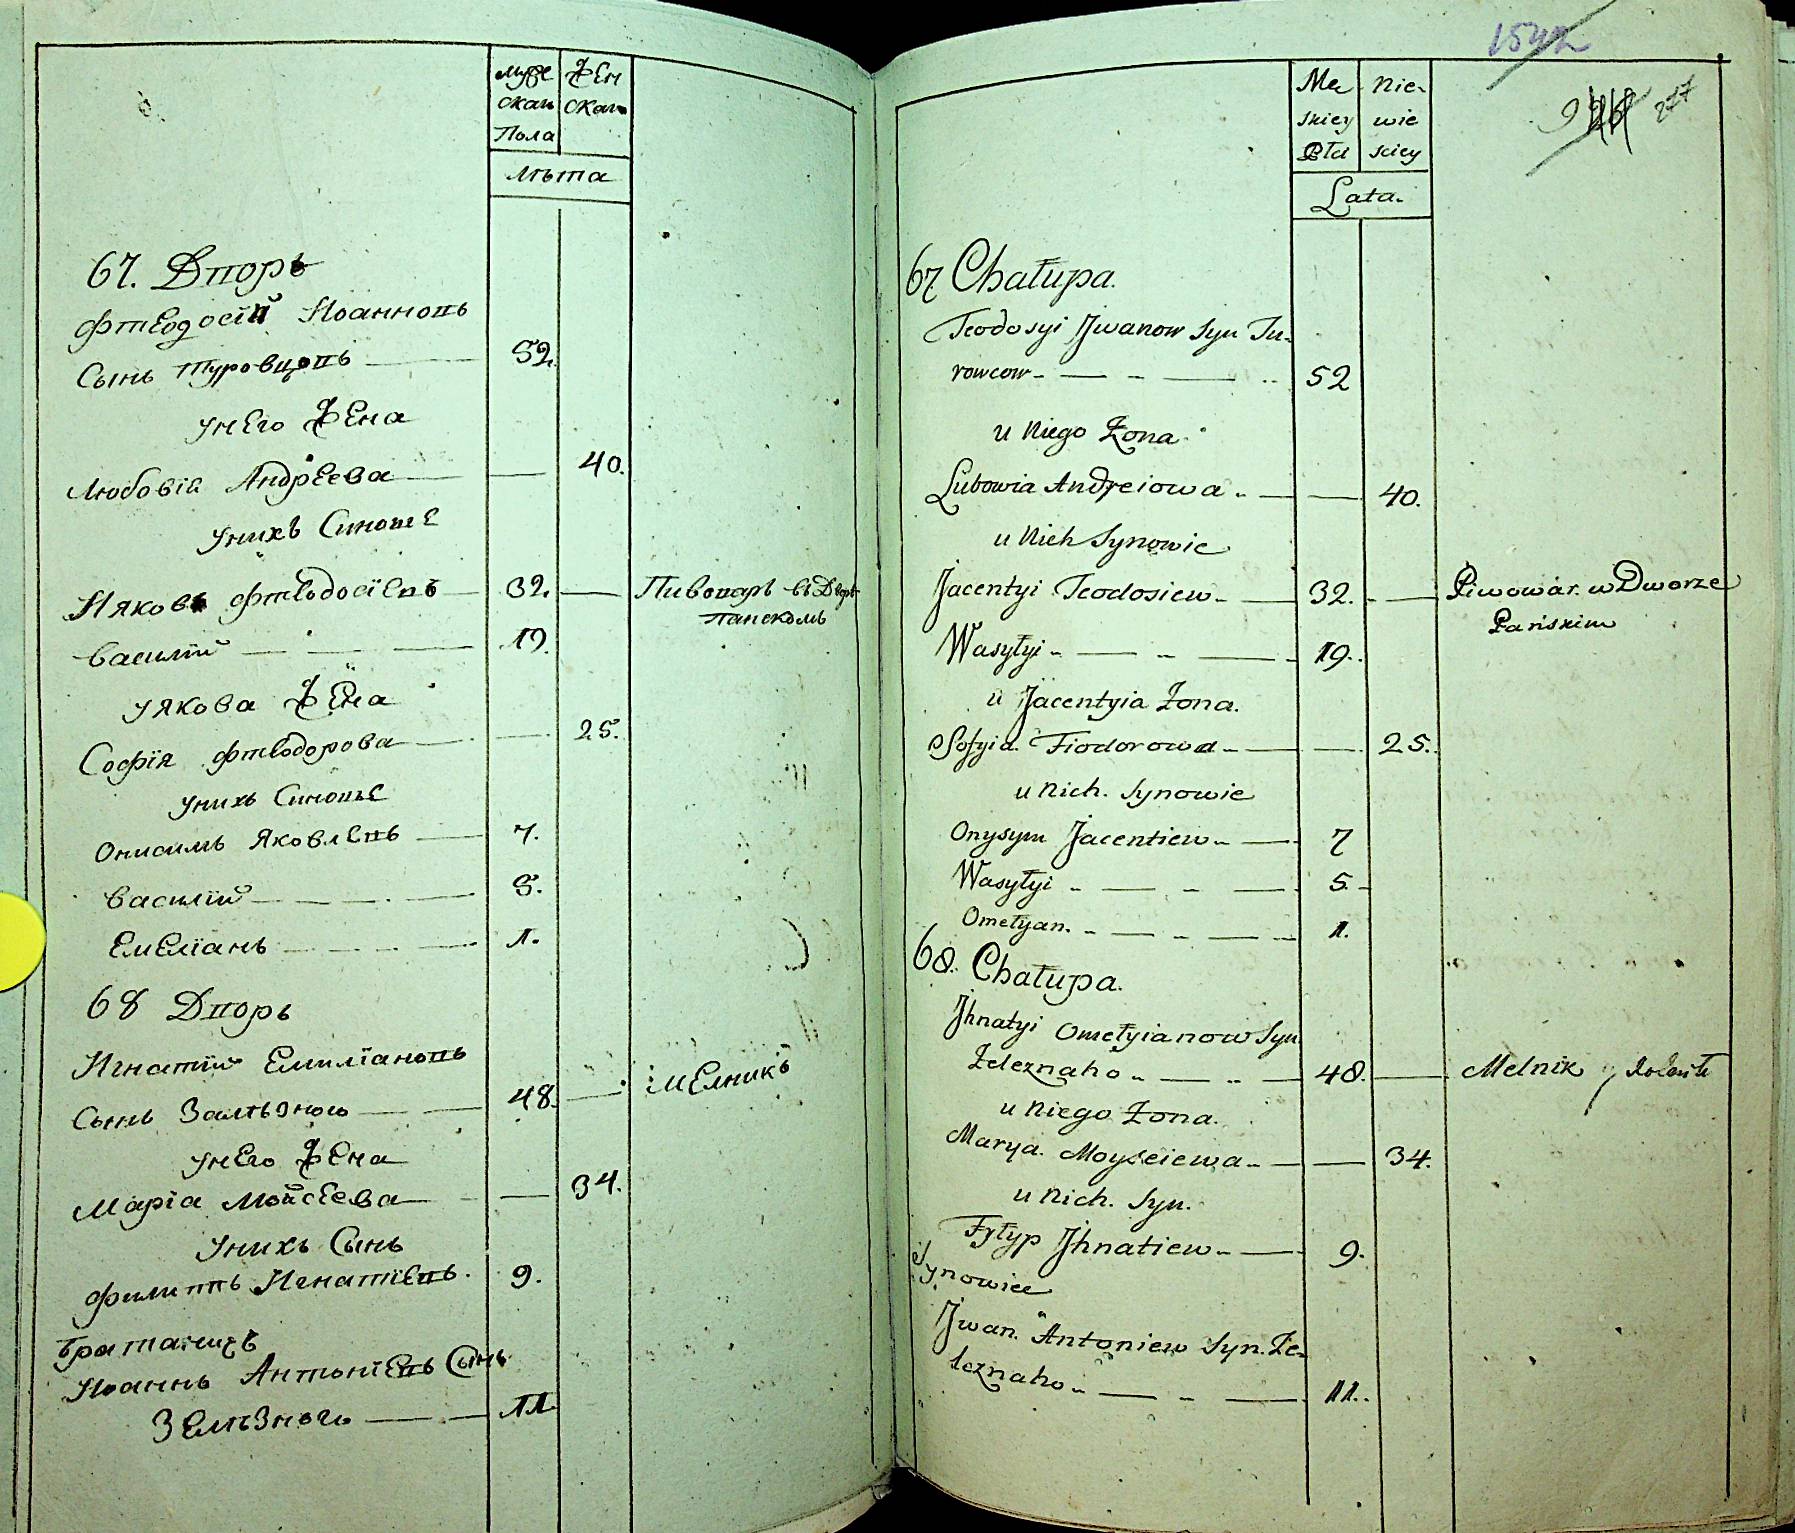 муже
ская
пола
жен
ская
лѣта
67. Дпоръ
Фтеодосій Иоаннопъ
Сынъ Туровцопъ 52.
унего жена
Любовія Андреева 40.
унихъ Синопе
Ияковъ Фтеодосіепъ 32. Пивопаръ въ Дворѣ
Панскомъ
Василій 19.
уякова жена
Софія Фтеодорова 25.
унихъ Синопе
Онисимъ Яковлепъ 7.
Василій 5.
Емеліанъ 1.
68 Дпоръ
Игнатій Емиліанопъ
Сынъ Залѣзного 48. Мелникъ
унего жена
Маріа Мойсеева 34.
унихъ Сынъ
Филиппъ Игнатіепъ. 9.
братаничъ
Иоаннъ Антоніепъ Сынъ
Зелѣзного 11
277
Mę
skiey
Płci
Nie-
wie
sciey
Lata.
67 Chałupa.
Teodosyi Jwanow Syn Tu-
rowcow 52
u Niego Żona.
Lubowia Andreiowa 40.
u Nich Synowie
Jacentyi Teodosiew 32. Piwowar w Dworze
Pańskim
Wasyłyi 19.
u Jacentyia Żona.
Sofyia Fiodorowa 25.
u Nich. Synowie
Onysym Jacentiew 7
Wasyłyi 5
Omełyan. 1.
68. Chałupa.
Jhnatyi Omełyianow Syn
Żeleznaho 48. Melnik
u Niego Żona.
Marya. Moyseiewa 34.
u Nich. Syn.
Fyłyp Jhnatiew 9.
Synowiec
Jwan. Antoniew Syn. Że-
leznaho 11.